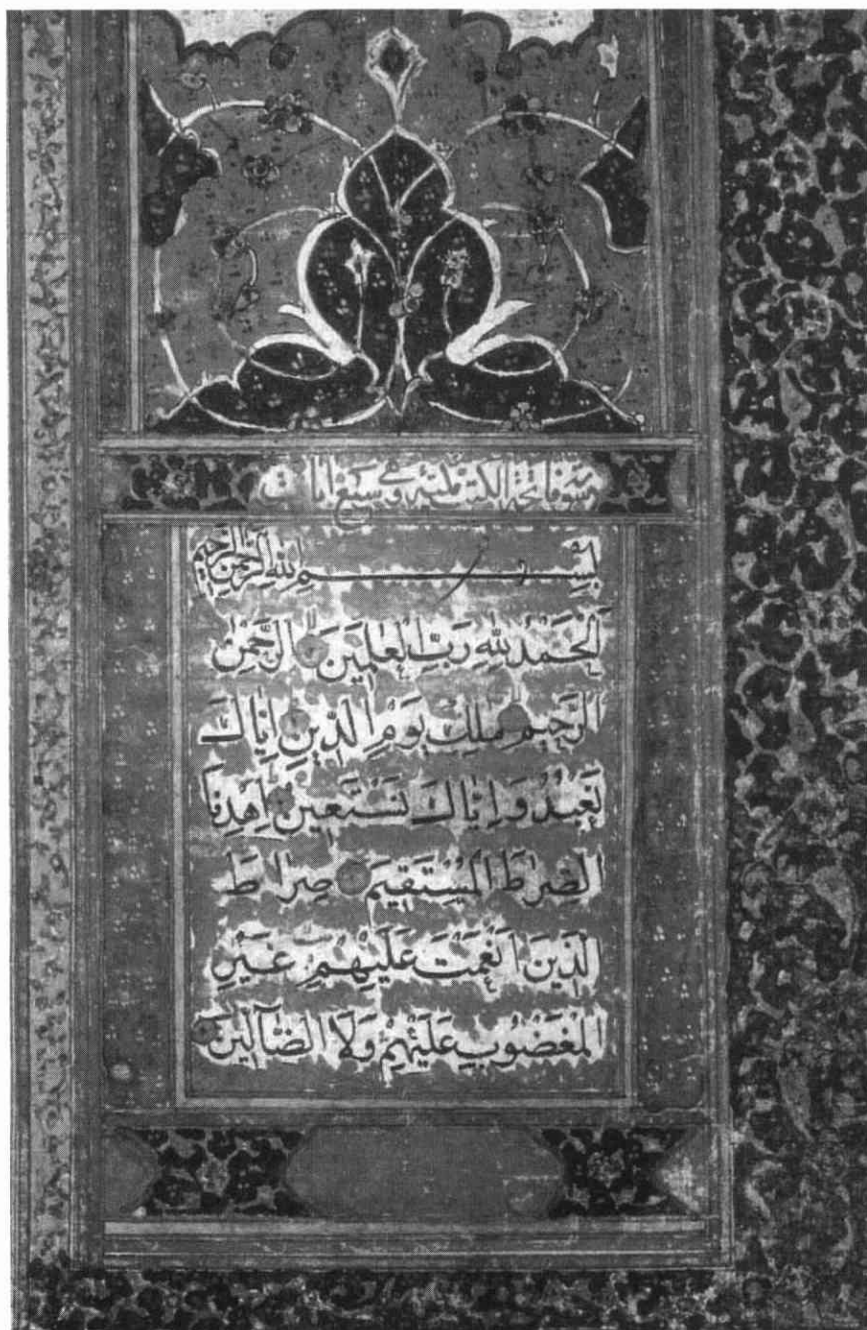 سورة فاتحة الكتب مكية وهي سبع ايات
بِسْمِ اللهِ الرَّحْمٰنِ الرَّحِيمِ
اَلْحَمْدُ لِلهِ رَبِّ الْعٰلَمِينَ الرَّحْمٰنِ
الرَّحِيمِ مٰلِكِ يَوْمِ الدِّينِ اِيَّاكَ
نَعْبُدُ وَاِيَّاكَ نَسْتَعِينُ اِهْدِنَا
الصِّرَاطَ الْمُسْتَقِيمَ صِرَاطَ
الَّذِينَ اَنْعَمْتَ عَلَيْهِمْ غَيْرِ
الْمَغْضُوبِ عَلَيْهِمْ وَلَا الضَّآلِّينَ